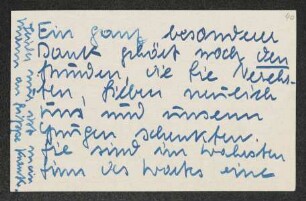 Ein ganz besonderer
Dank gehört noch den
Stunden, die Sie Verehr-
ten, Lieben neulich
uns und unseren
Jungen schenkten.
Sie sind im wahrsten
Sinn des Wortes eine